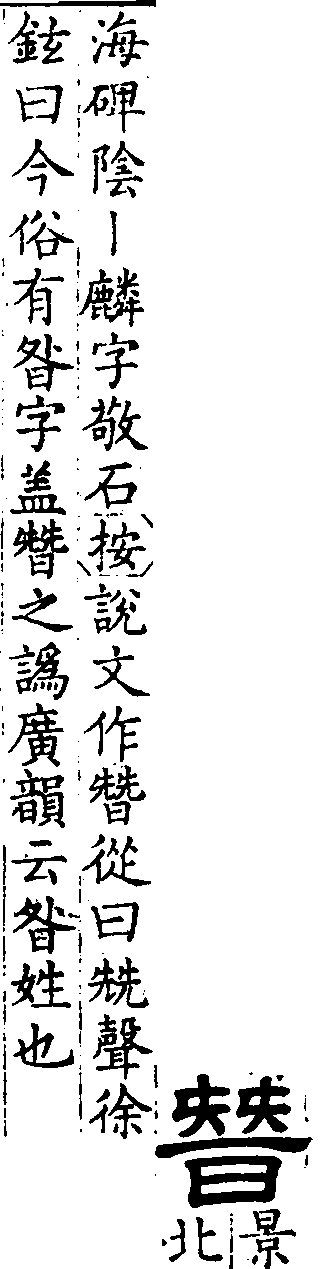 朁
景
北
海碑陰丨麟字敬石按說文作朁從曰兓聲徐
鉉曰今俗有昝字盖朁之譌廣韻云昝姓也